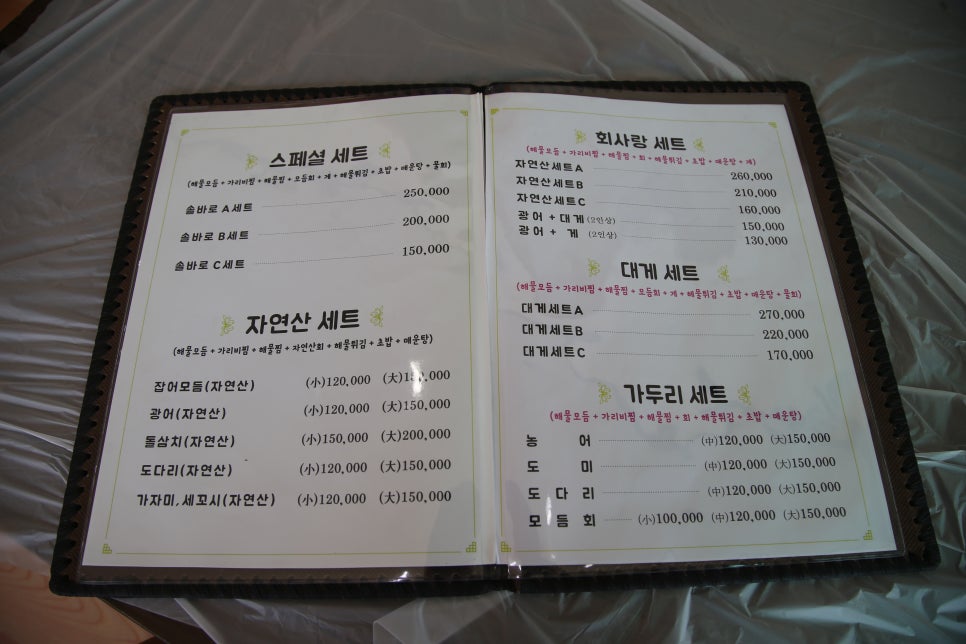 스페셜 세트
(해물모듬 + 가리비찜 + 해물찜 + 모듬회 + 게 + 해물튀김 + 초밥 + 매운탕 + 물회)
솔바로 A세트 250,000
솔바로 B세트 200,000
솔바로 C세트 150,000
자연산 세트
(해물모듬 + 가리비찜 + 해물찜 + 자연산회 + 해물튀김 + 초밥 + 매운탕)
잡어모듬(자연산) (小)120,000 (大)150,000
광어(자연산) (小)120,000 (大)150,000
돌삼치(자연산) (小)150,000 (大)200,000
도다리(자연산) (小)120,000 (大)150,000
가자미,세꼬시(자연산) (小)120,000 (大)150,000
회사랑 세트
(해물모듬 + 가리비찜 + 해물찜 + 회 + 해물튀김 + 초밥 + 매운탕 + 게)
자연산세트A 260,000
자연산세트B 210,000
자연산세트C 160,000
광어 + 대게 (2인상) 150,000
광어 + 게 (2인상) 130,000
대게 세트
(해물모듬 + 가리비찜 + 해물찜 + 모듬회 + 게 + 해물튀김 + 초밥 + 매운탕 + 물회)
대게세트A 270,000
대게세트B 220,000
대게세트C 170,000
가두리 세트
(해물모듬 + 가리비찜 + 해물찜 + 회 + 해물튀김 + 초밥 + 매운탕)
농 어 (中)120,000 (大)150,000
도 미 (中)120,000 (大)150,000
도 다 리 (中)120,000 (大)150,000
모 듬 회 (小)100,000 (中)120,000 (大)150,000